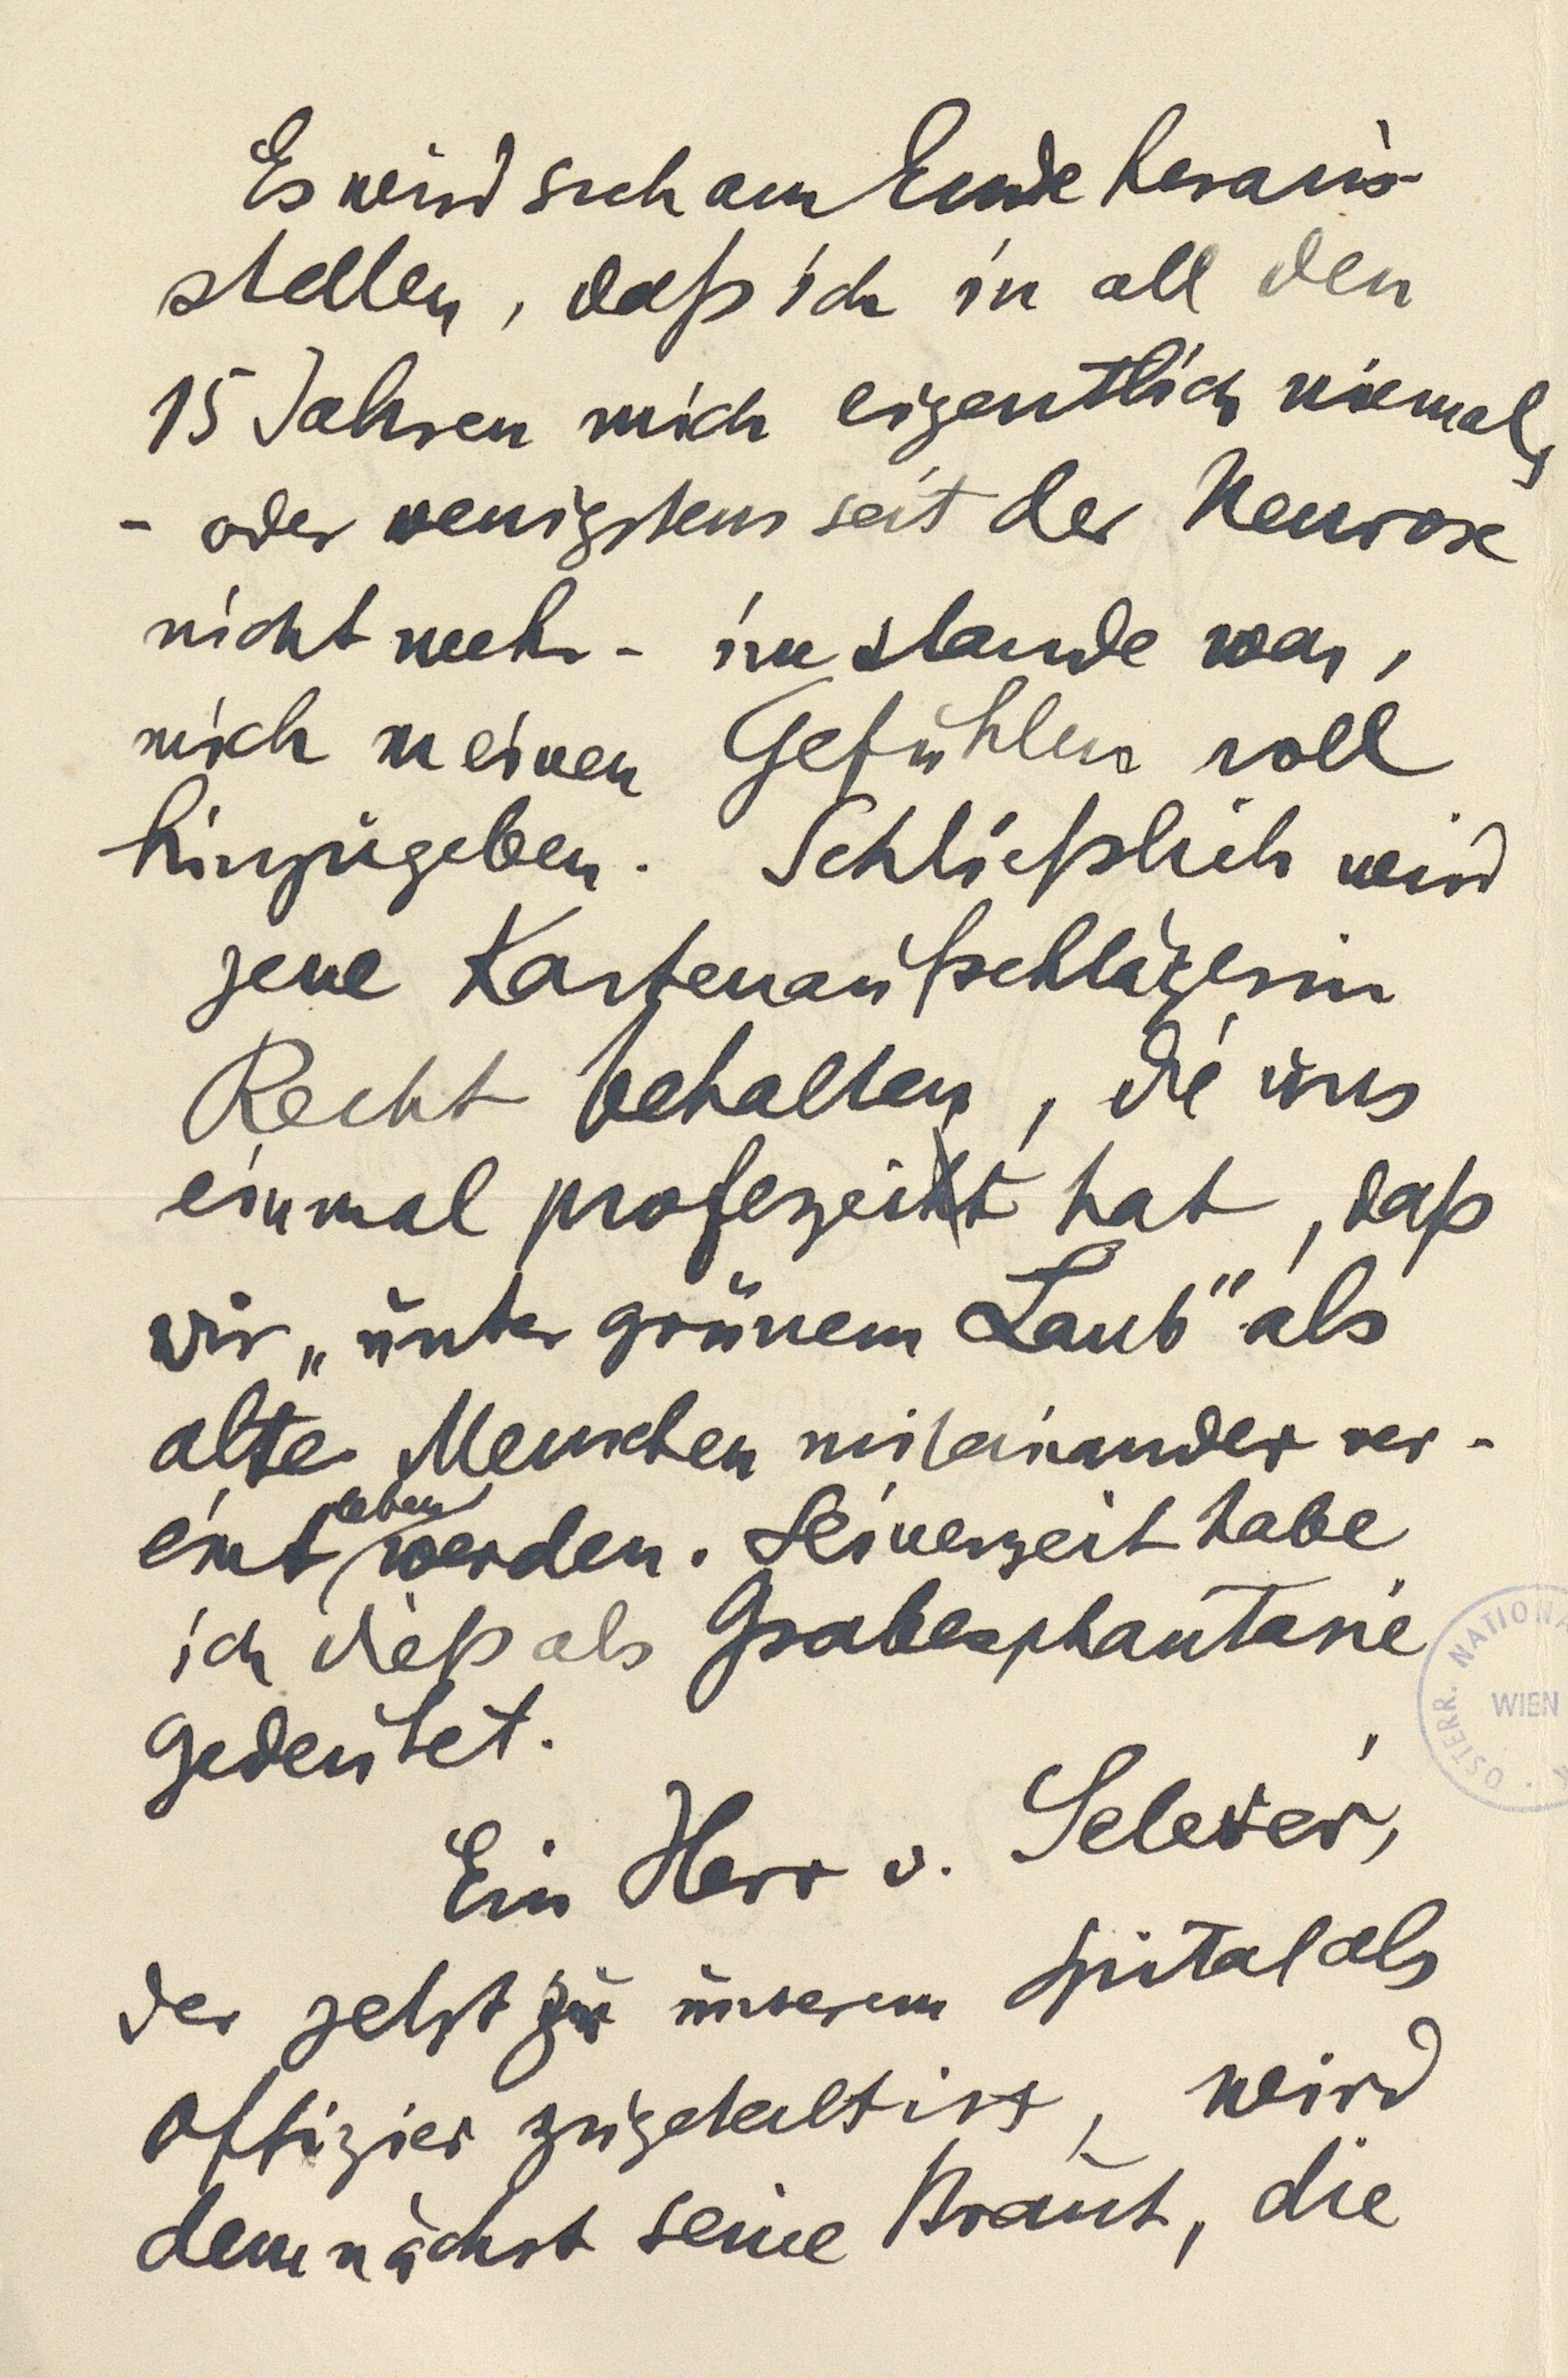 Es wird sich am Ende heraus-
stellen, daß ich in all den
15 Jahren mich eigentlich niemals
- oder wenigstens seit der Neurose
nicht mehr - im stande war,
mich meinen Gefühlen voll
hinzugeben. Schließlich wird
jene Kartenaufschlägerin
Recht behalten, die uns
einmal profezeiht hat, daß
wir „unter grünem Laub" als
alte Menschen miteinander ver-
leben
eint werden. Seinerzeit habe
ich dieß als Grabesphantasie
gedeutet.
Ein Herr v.
der jetzt zu unserem Spital als
Offizier zugeteilt ist, wird
demnächst seine Braut, die
ÖSTERR. NATIONA
WIEN